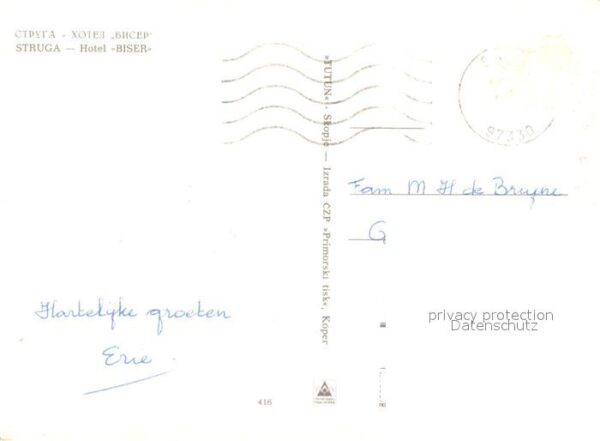 СТРУГА - ХОТЕЛ „БИСЕР“
STRUGA — Hotel »BISER«
97330
»TUTUN« - Skopje — Izrada ČZP »Primorski tisk«, Koper
Fam M H de Bruyne
G
Hartelijke groeten
Eric
privacy protection
Datenschutz
416